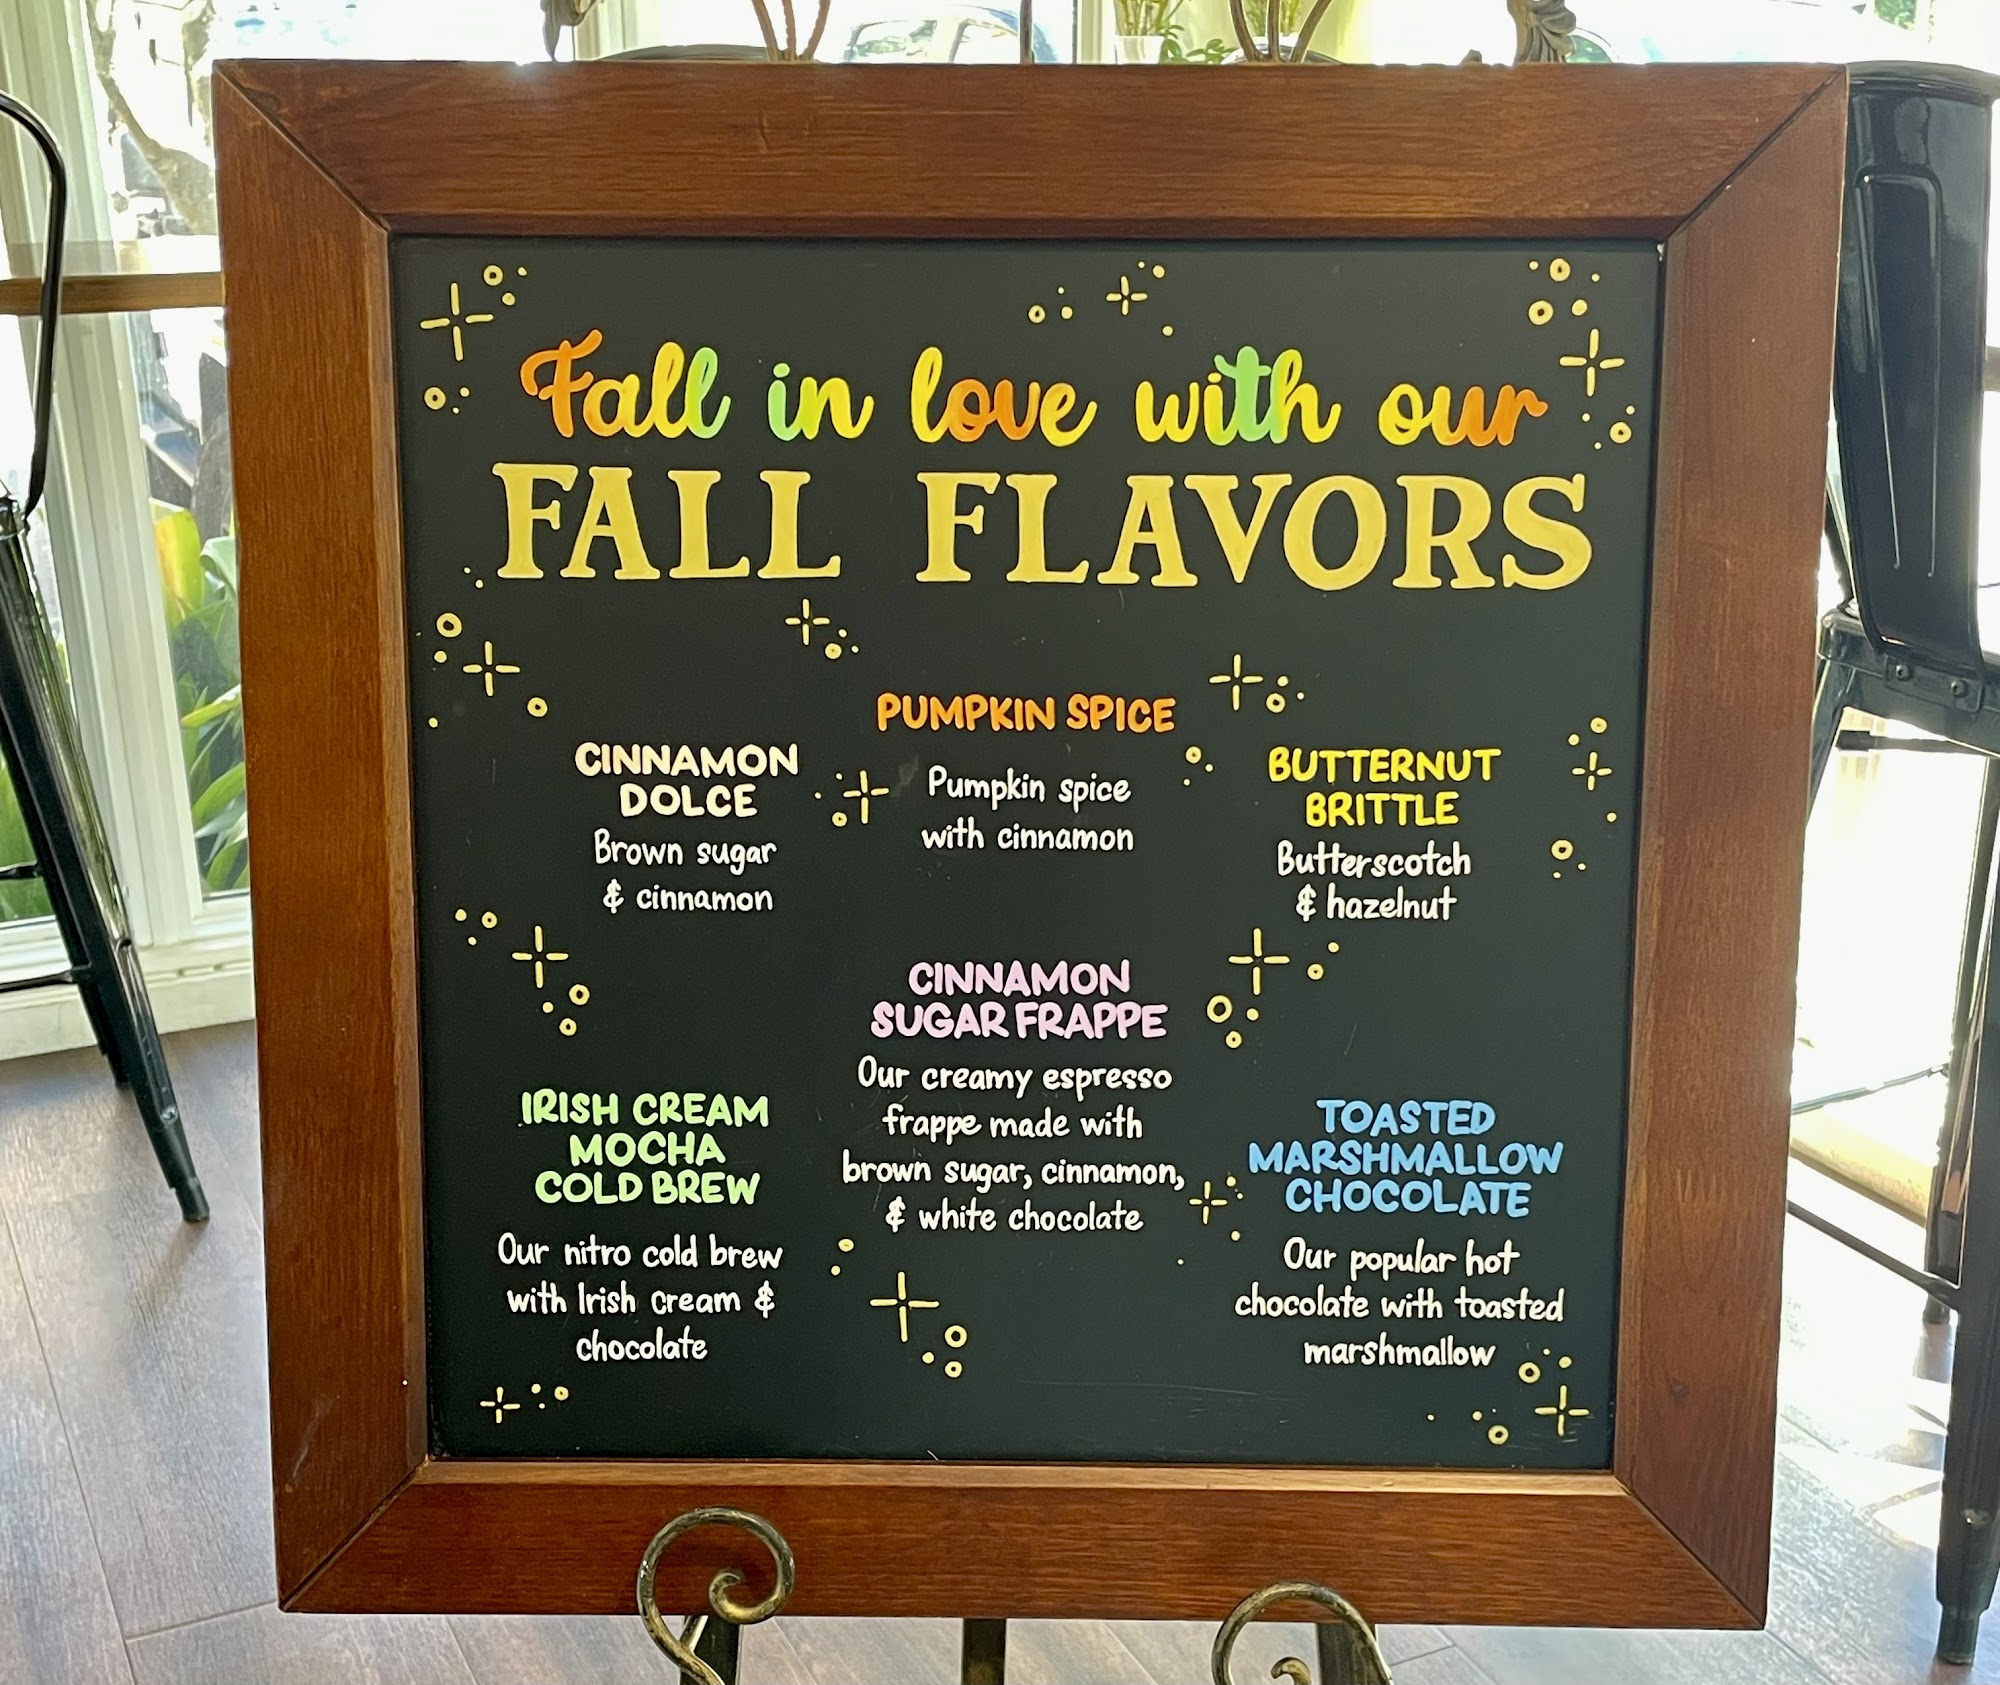 Fall in love with our
FALL FLAVORS
CINNAMON
DOLCE
Brown sugar
& cinnamon
PUMPKIN SPICE
Pumpkin spice
with cinnamon
BUTTERNUT
BRITTLE
Butterscotch
& hazelnut
IRISH CREAM
MOCHA
COLD BREW
Our nitro cold brew
with Irish cream &
chocolate
CINNAMON
SUGAR FRAPPE
Our creamy espresso
frappe made with
brown sugar, cinnamon,
& white chocolate
TOASTED
MARSHMALLOW
CHOCOLATE
Our popular hot
chocolate with toasted
marshmallow